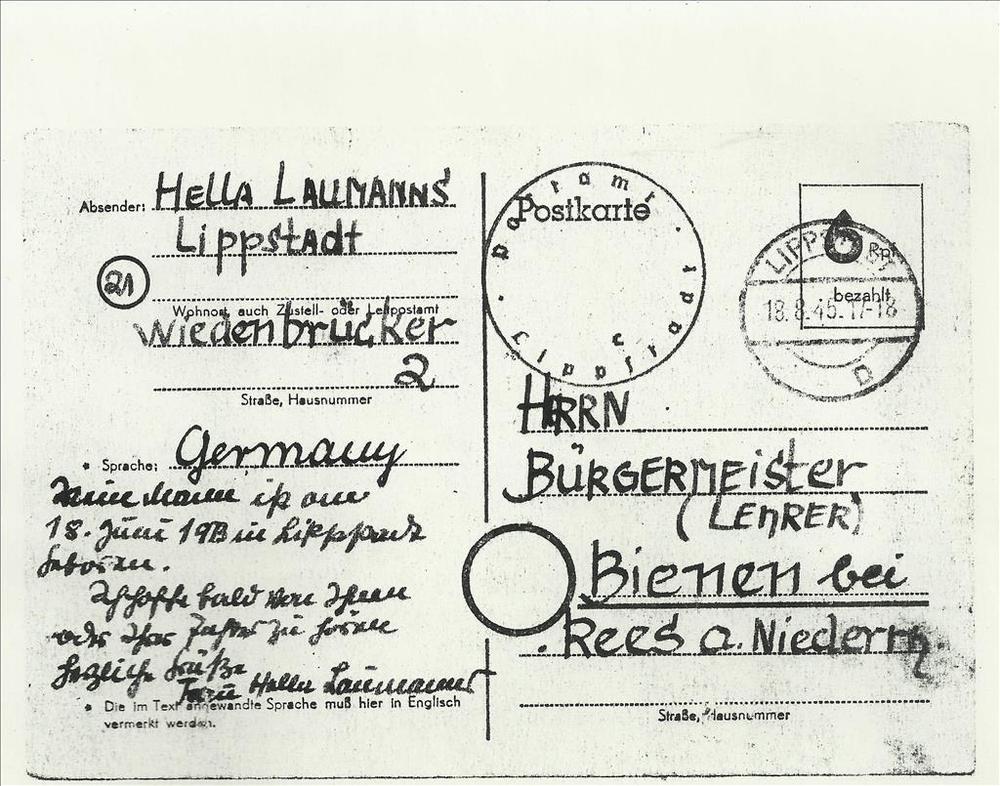 Absender: HELLA LAUMANNS
Lippstadt
21
Wohnort, auch Zustell- oder Leitpostamt
Wiedenbrücker
2
Straße, Hausnummer
* Sprache: Germany
Mein Mann ist am
18. Juni 19 in Lippstadt
geboren.
Ich hoffe bald von Ihnen
oder Ihrer zu hören
herzliche Grüße
Frau Hella Laumanns
* Die im Text angewandte Sprache muß hier in Englisch
vermerkt werden.
Postkarte
postamt
lippstadt
c
6
RPf
bezahlt
LIPPSTADT
18.8.45.17-18
D
HERRN
BÜRGERMEISTER
(LEHRER)
Bienen bei
Rees a. Niederrh.
Straße, Hausnummer